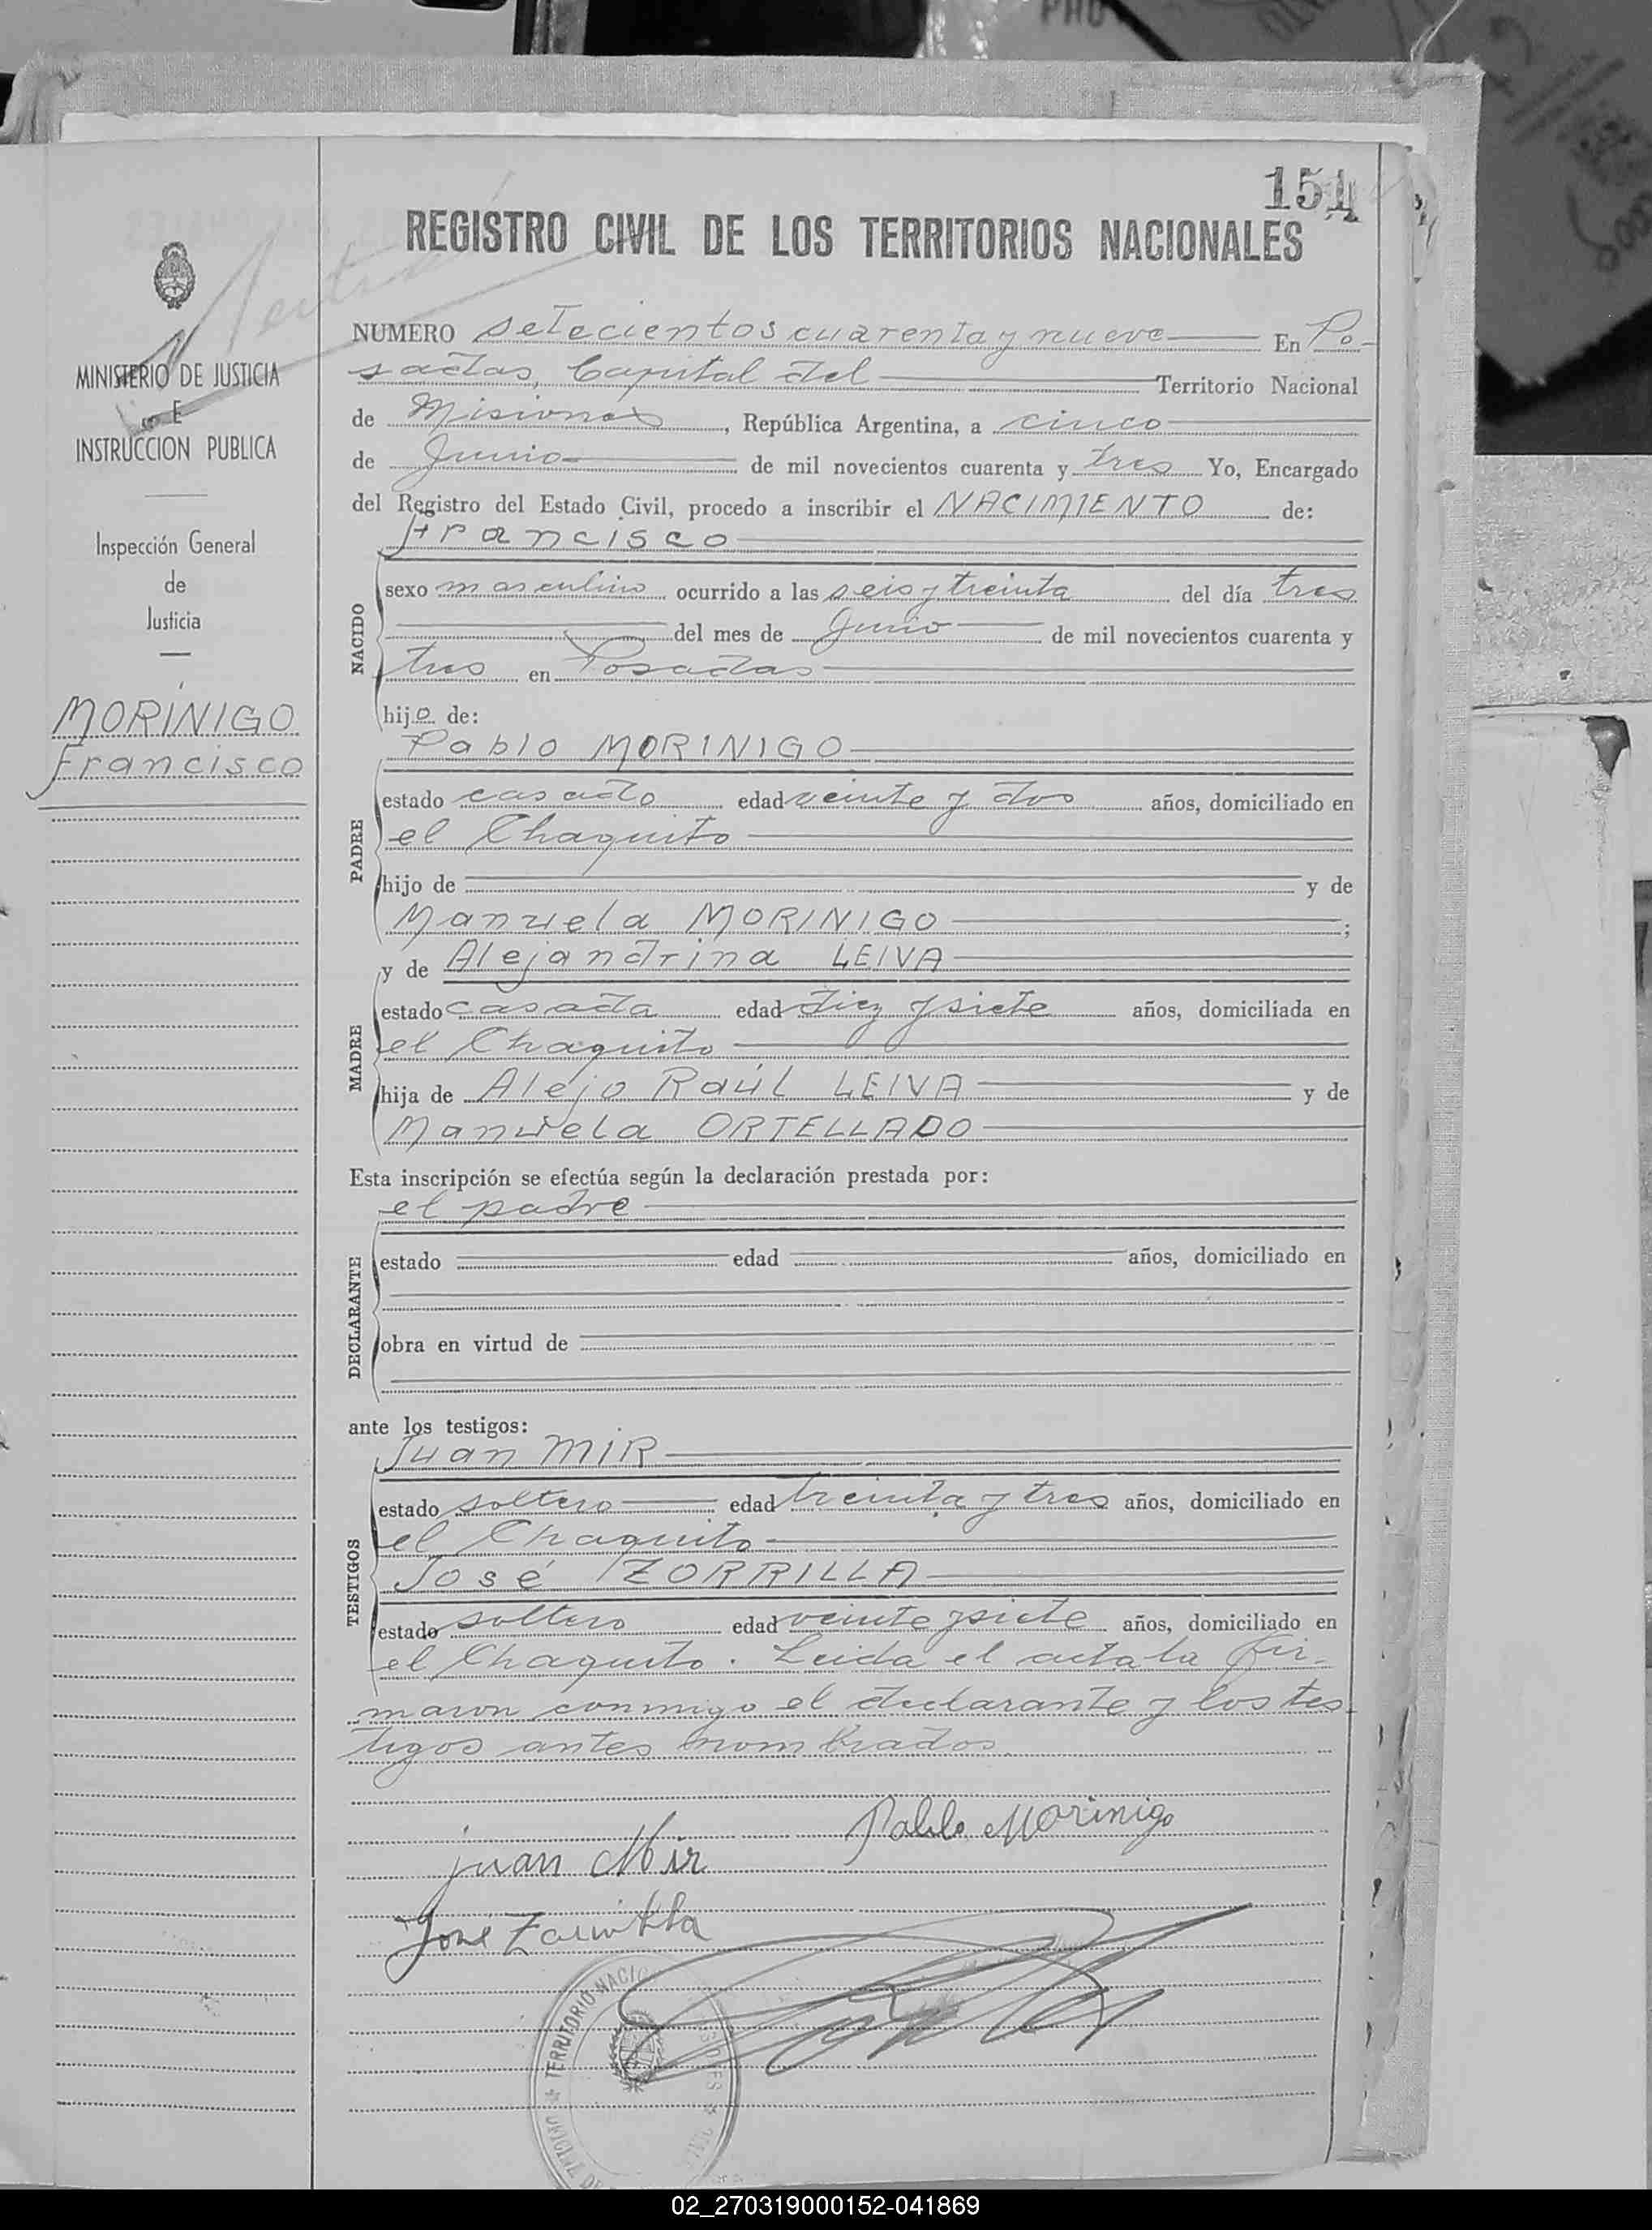 151
REGISTRO CIVIL DE LOS TERRITORIOS NACIONALES
MINISTERIO DE JUSTICIA
E
INSTRUCCION PUBLICA
Inspección General
de
Justicia
MORINIGO
Francisco
NUMERO setecientos cuarenta y nueve En Po-
sadas, Capital del Territorio Nacional
de Misiones, República Argentina, a cinco
de Junio de mil novecientos cuarenta y tres Yo, Encargado
del Registro del Estado Civil, procedo a inscribir el NACIMIENTO de:
Francisco
NACIDO
sexo masculino ocurrido a las seis y treinta del día tres
del mes de Junio de mil novecientos cuarenta y
tres en Posadas
hijo de:
Pablo MORINIGO
PADRE
estado casado edad veinte y dos años, domiciliado en
el Chaquito
hijo de y de
Manuela MORINIGO ;
y de Alejandrina LEIVA
MADRE
estado casada edad diez y siete años, domiciliada en
el Chaquito
hija de Alejo Raúl LEIVA y de
Manuela ORTELLADO
Esta inscripción se efectúa según la declaración prestada por:
el padre
DECLARANTE
estado edad años, domiciliado en
obra en virtud de
ante los testigos:
Juan MIR
TESTIGOS
estado soltero edad treinta y tres años, domiciliado en
el Chaquito
José ZORRILLA
estado soltero edad veinte y siete años, domiciliado en
el Chaquito. Leida el acta la fir-
maron conmigo el declarante y los tes
tigos antes nombrados.
Pablo Morinigo
juan Mir
José
TERRITORIO NACI
02_270319000152-041869